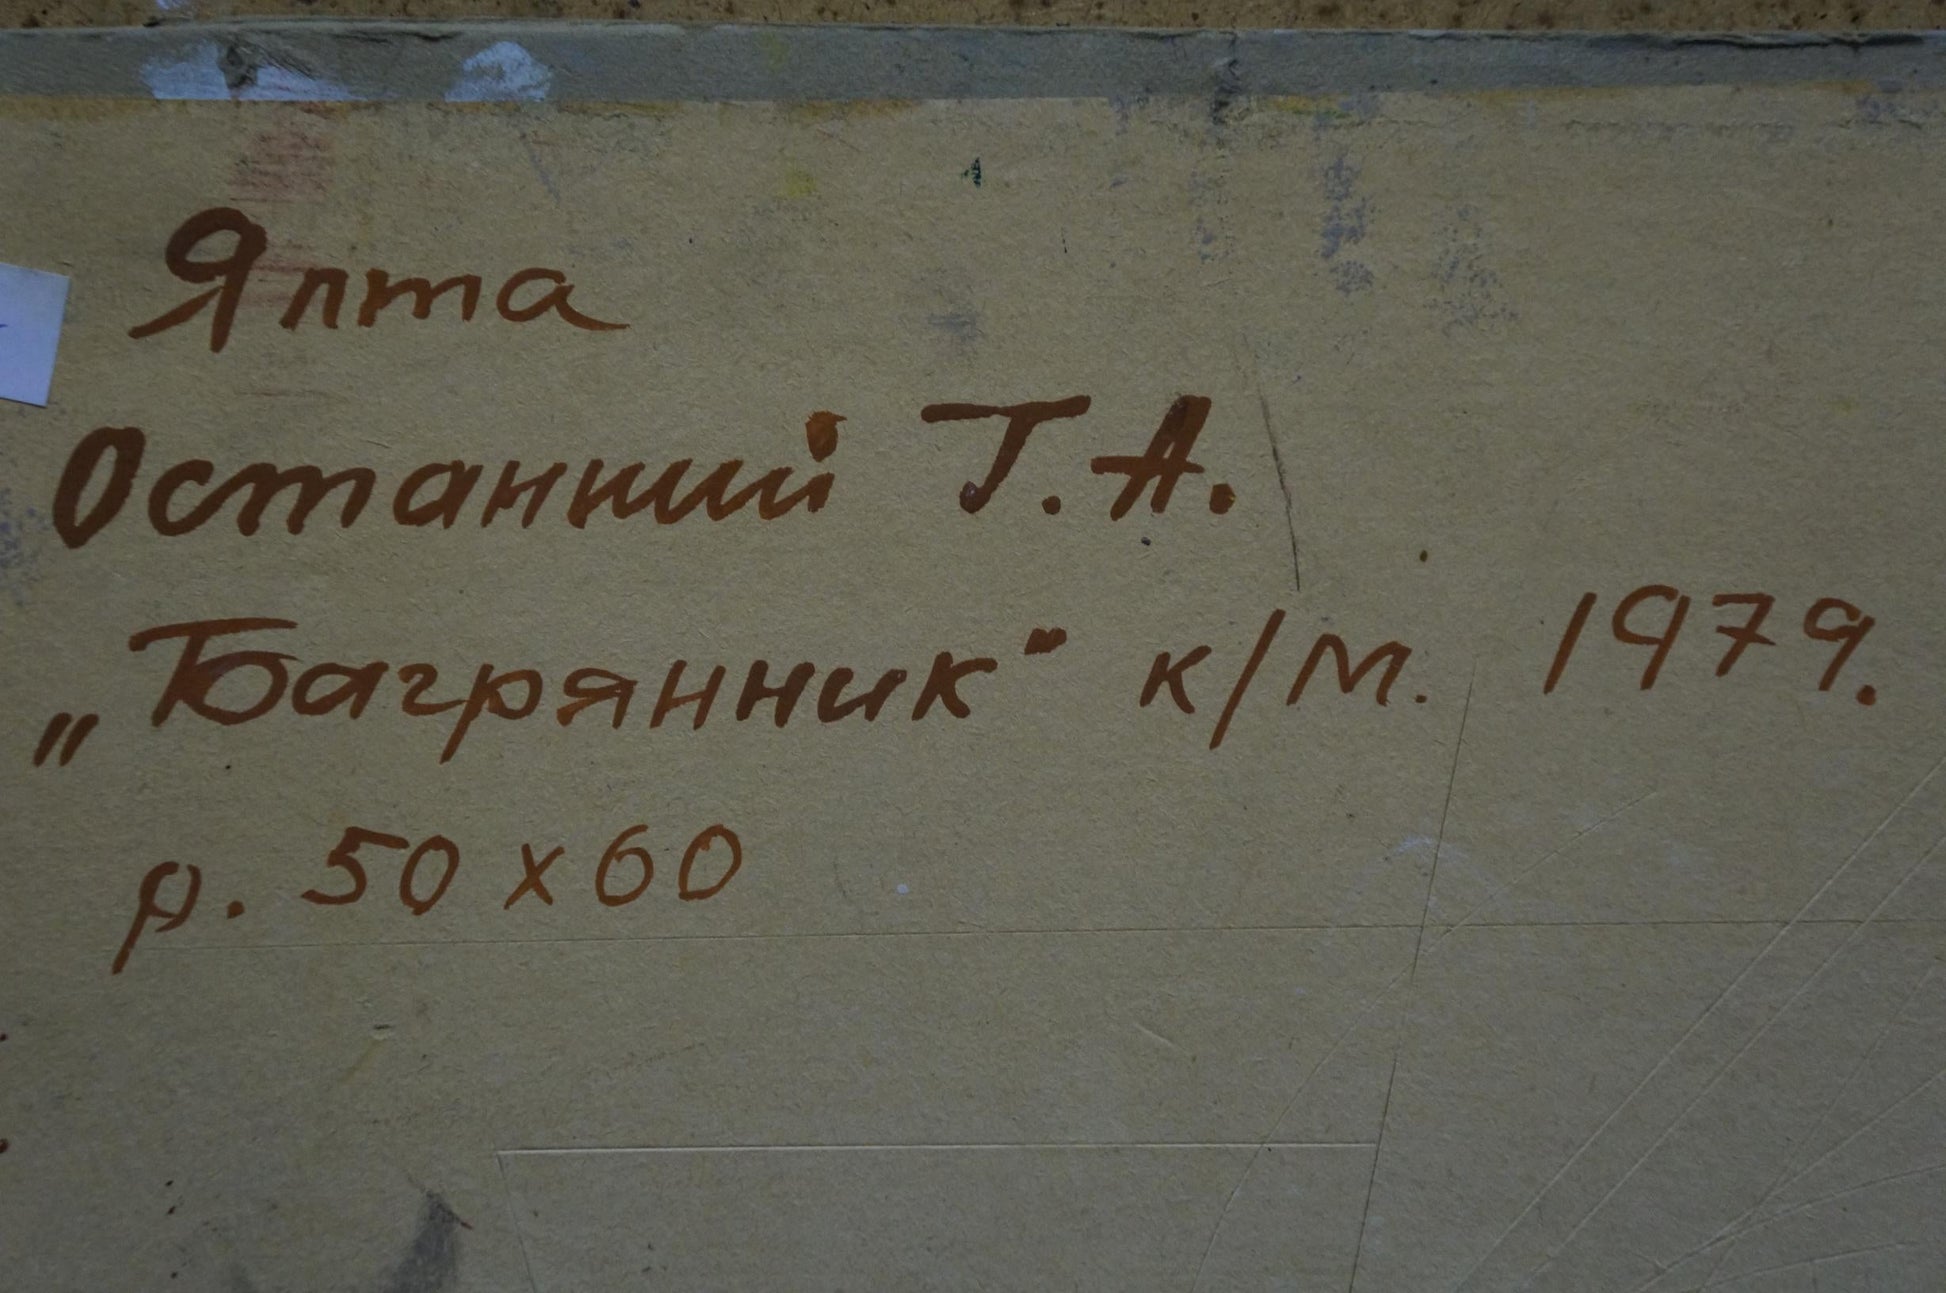 Ялта
Останний Г. А.
„Багрянник" к/м. 1979.
р. 50 х 60